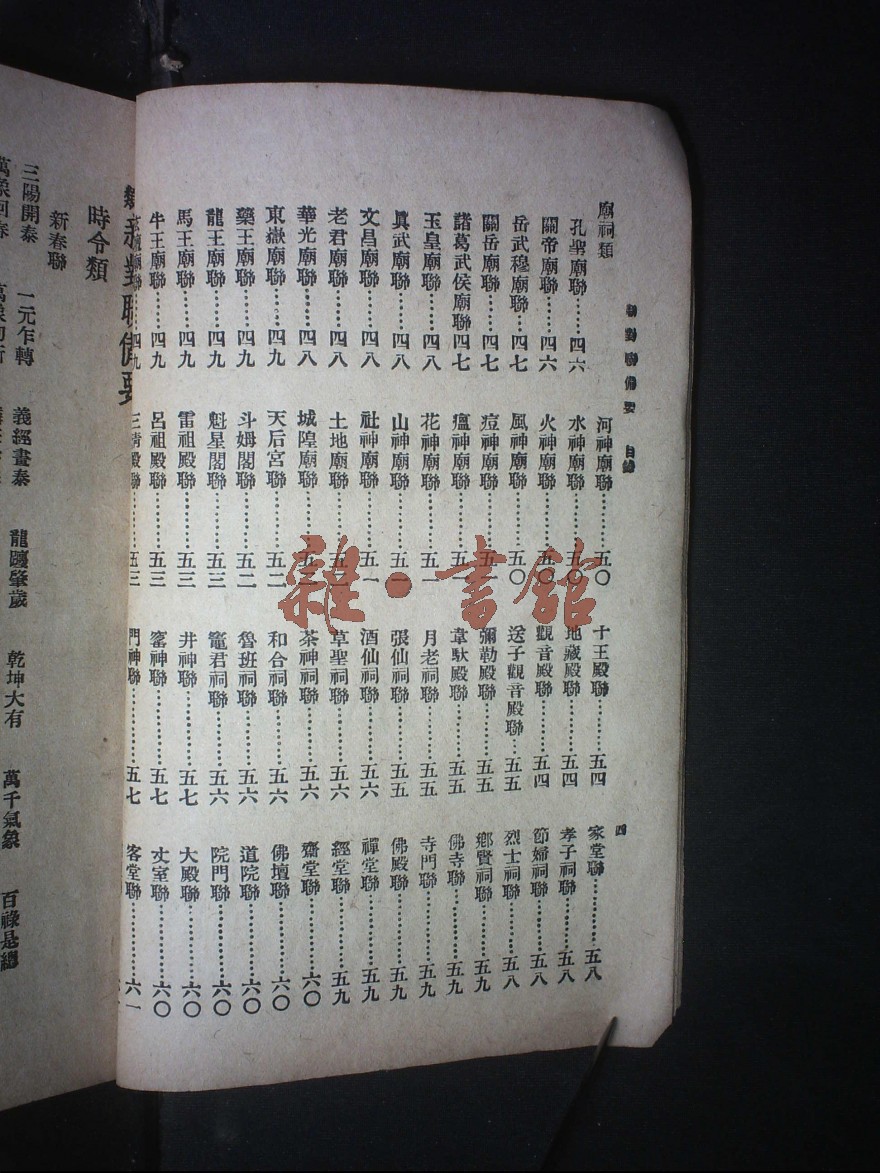 新對聯備要 目錄 四
廟祠類
孔聖廟聯……四六
關帝廟聯……四六
岳武穆廟聯……四七
關岳廟聯……四七
諸葛武侯廟聯……四七
玉皇廟聯……四八
眞武廟聯……四八
文昌廟聯……四八
老君廟聯……四八
華光廟聯……四八
東嶽廟聯……四九
藥王廟聯……四九
龍王廟聯……四九
馬王廟聯……四九
牛王廟聯……四九
廟聯……四九
河神廟聯……五〇
水神廟聯……五〇
火神廟聯……五〇
風神廟聯……五〇
痘神廟聯……五一
瘟神廟聯……五一
花神廟聯……五一
山神廟聯……五一
社神廟聯……五一
土地廟聯……五二
城隍廟聯……五二
天后宮聯……五二
斗姆閣聯……五二
魁星閣聯……五三
雷祖殿聯……五三
呂祖殿聯……五三
三清殿聯……五三
十王殿聯……五四
地藏殿聯……五四
觀音殿聯……五四
送子觀音殿聯……五五
彌勒殿聯……五五
韋馱殿聯……五五
月老祠聯……五五
張仙祠聯……五五
酒仙祠聯……五六
草聖祠聯……五六
茶神祠聯……五六
和合祠聯……五六
魯班祠聯……五六
竈君祠聯……五六
井神聯……五七
窰神聯……五七
門神聯……五七
家堂聯……五八
孝子祠聯……五八
節婦祠聯……五八
烈士祠聯……五八
鄉賢祠聯……五九
佛寺聯……五九
寺門聯……五九
佛殿聯……五九
禪堂聯……五九
經堂聯……五九
齋堂聯……六〇
佛壇聯……六〇
道院聯……六〇
院門聯……六〇
大殿聯……六〇
丈室聯……六〇
客堂聯……六一
新對聯備要
時令類
新春聯
三陽開泰 一元乍轉 義經畫泰 龍躔肇歲 乾坤大有 萬千氣象 百祿是總
萬象回春
雜·書館